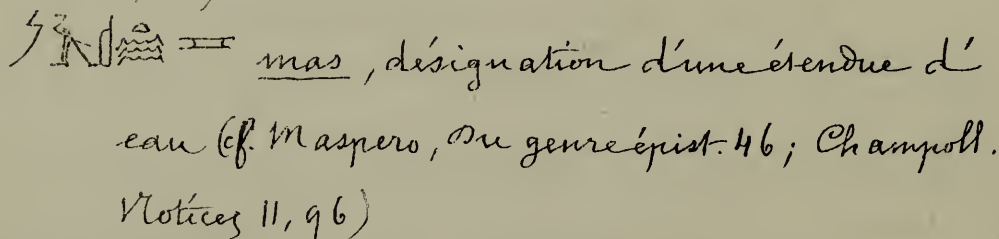 mas, désignation d'une étendue d'
eau (cf. Maspero, Du genre épist. 46; Champoll.
Notices 11, 96)